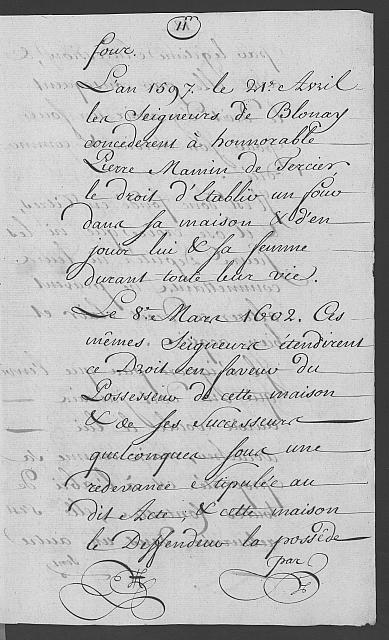 four.
L'an 1597. le 21e. Avril
les Seigneurs de Blonay
concederent à honnorable
Pierre Mamin de Tercier,
le droit d'Etablir un four
dans sa maison & d'en
jouir lui & sa femme
durant toute leur vie.
Le 8e. Mars 1602. Ces
mêmes Seigneurs étendirent
ce Droit en faveur du
Possesseur de cette maison
& de ses Successeurs
quelconques sous une
redevance stipulée au
dit Acte, & cette maison
le Deffendeur la possède
par